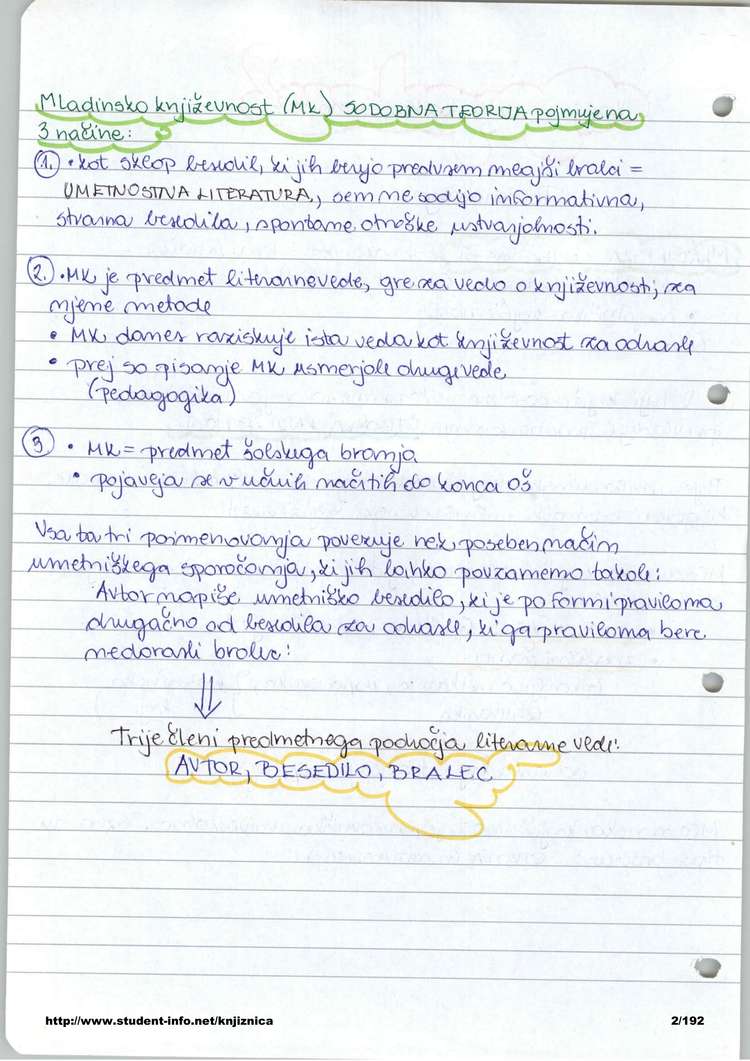 Mladinsko književnost (MK) SODOBNA TEORIJA pojmuje na
3 načine:
1. • kot sklop besedil, ki jih berejo predvsem mlajši bralci =
UMETNOSTNA LITERATURA, sem ne sodijo informativna,
stvarna besedila, spontane otroške ustvarjalnosti.
2. • MK je predmet literarne vede, gre za vedo o književnosti, za
njene metode
• MK danes raziskuje ista veda kot književnost za odrasle
• prej so pisanje MK usmerjale druge vede
(pedagogika)
3 • MK = predmet šolskega branja
• pojavlja se v učnih načrtih do konca OŠ
Vsa ta tri poimenovanja povezuje nek poseben način
umetniškega sporočanja, ki jih lahko povzamemo takole:
Avtor napiše umetniško besedilo, ki je po formi praviloma
drugačno od besedila za odrasle, ki ga praviloma bere
nedorasli bralec!
⇓
Trije členi predmetnega področja literarne vede:
AVTOR, BESEDILO, BRALEC
http://www.student-info.net/knjiznica 2/192